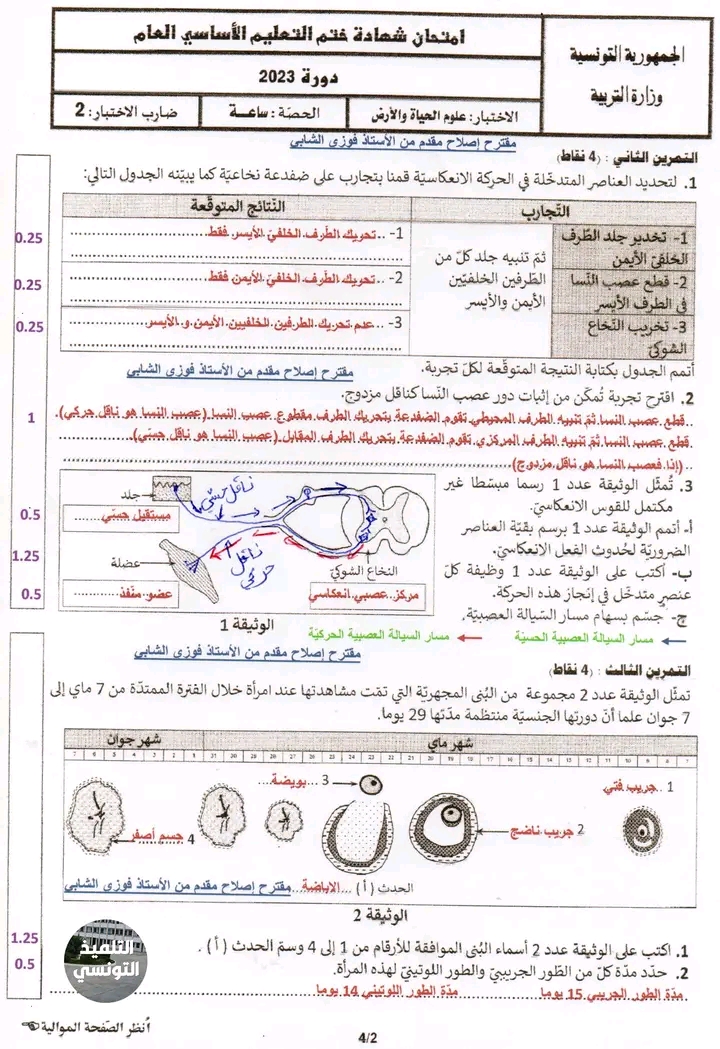 الجمهورية التونسية
وزارة التربية
امتحان شهادة ختم التعليم الأساسي العام
دورة 2023
الاختبار: علوم الحياة والأرض
الحصّة: ساعة
ضارب الاختبار: 2
مقترح إصلاح مقدم من الأستاذ فوزي الشابي
التمرين الثاني : (4 نقاط)
1. لتحديد العناصر المتدخّلة في الحركة الانعكاسيّة قمنا بتجارب على ضفدعة نخاعيّة كما يبيّنه الجدول التالي:
التّجارب
النّتائج المتوقّعة
1- تخدير جلد الطّرف الخلفيّ الأيمن
2- قطع عصب النّسا في الطرف الأيسر
3- تخريب النّخاع الشوكيّ
ثمّ تنبيه جلد كلّ من
الطّرفين الخلفيّين
الأيمن والأيسر
1- ..تحريك الطّرف الخلفيّ الأيسر فقط
2- ..تحريك الطّرف الخلفيّ الأيمن فقط
3- ..عدم تحريك الطرفين الخلفيين الأيمن و الأيسر
0.25
0.25
0.25
أتمم الجدول بكتابة النتيجة المتوقّعة لكلّ تجربة.
مقترح إصلاح مقدم من الأستاذ فوزي الشابي
2. اقترح تجربة تُمكّن من إثبات دور عصب النّسا كناقل مزدوج.
..قطع عصب النسا ثمّ تنبيه الطرف المحيطي تقوم الضفدعة بتحريك الطرف مقطوع عصب النسا (عصب النسا هو ناقل حركي).
قطع عصب النسا ثمّ تنبيه الطرف المركزي تقوم الضفدعة بتحريك الطرف المقابل (عصب النسا هو ناقل حسّي)
..(إذا فعصب النسا هو ناقل مزدوج)
1
3. تُمثّل الوثيقة عدد 1 رسما مبسّطا غير
مكتمل للقوس الانعكاسيّ.
أ- أتمم الوثيقة عدد 1 برسم بقيّة العناصر
الضروريّة لحُدوث الفعل الانعكاسيّ.
ب- أكتب على الوثيقة عدد 1 وظيفة كلّ
عنصر متدخّل في إنجاز هذه الحركة.
ج- جسّم بسهام مسار السّيالة العصبيّة.
جلد
مستقبل حسّي
ناقل حسّي
عضلة
عضو منفّذ
ناقل حركي
النخاع الشوكيّ
مركز عصبي انعكاسي
0.5
1.25
0.5
الوثيقة 1
مسار السيالة العصبية الحسيّة
مسار السيالة العصبية الحركيّة
مقترح إصلاح مقدم من الأستاذ فوزي الشابي
التمرين الثالث : (4 نقاط)
تمثّل الوثيقة عدد 2 مجموعة من البُنى المجهريّة التي تمّت مشاهدتها عند امرأة خلال الفترة الممتدّة من 7 ماي إلى
7 جوان علما أنّ دورتها الجنسيّة منتظمة مدّتها 29 يوما.
شهر ماي
شهر جوان
1 ..جريب فتي
2 جريب ناضج
3 ...بويضة...
4 جسم أصفر
الحدث (أ) ...الاباضة...
مقترح إصلاح مقدم من الأستاذ فوزي الشابي
الوثيقة 2
1. اكتب على الوثيقة عدد 2 أسماء البُنى الموافقة للأرقام من 1 إلى 4 وسمّ الحدث (أ).
2. حدّد مدّة كلّ من الطّور الجريبيّ والطور اللوتينيّ لهذه المرأة.
مدّة الطور الجريبي 15 يوما
مدّة الطور اللوتيني 14 يوما
1.25
0.5
التلميذ
التونسي
أنظر الصّفحة الموالية
4/2